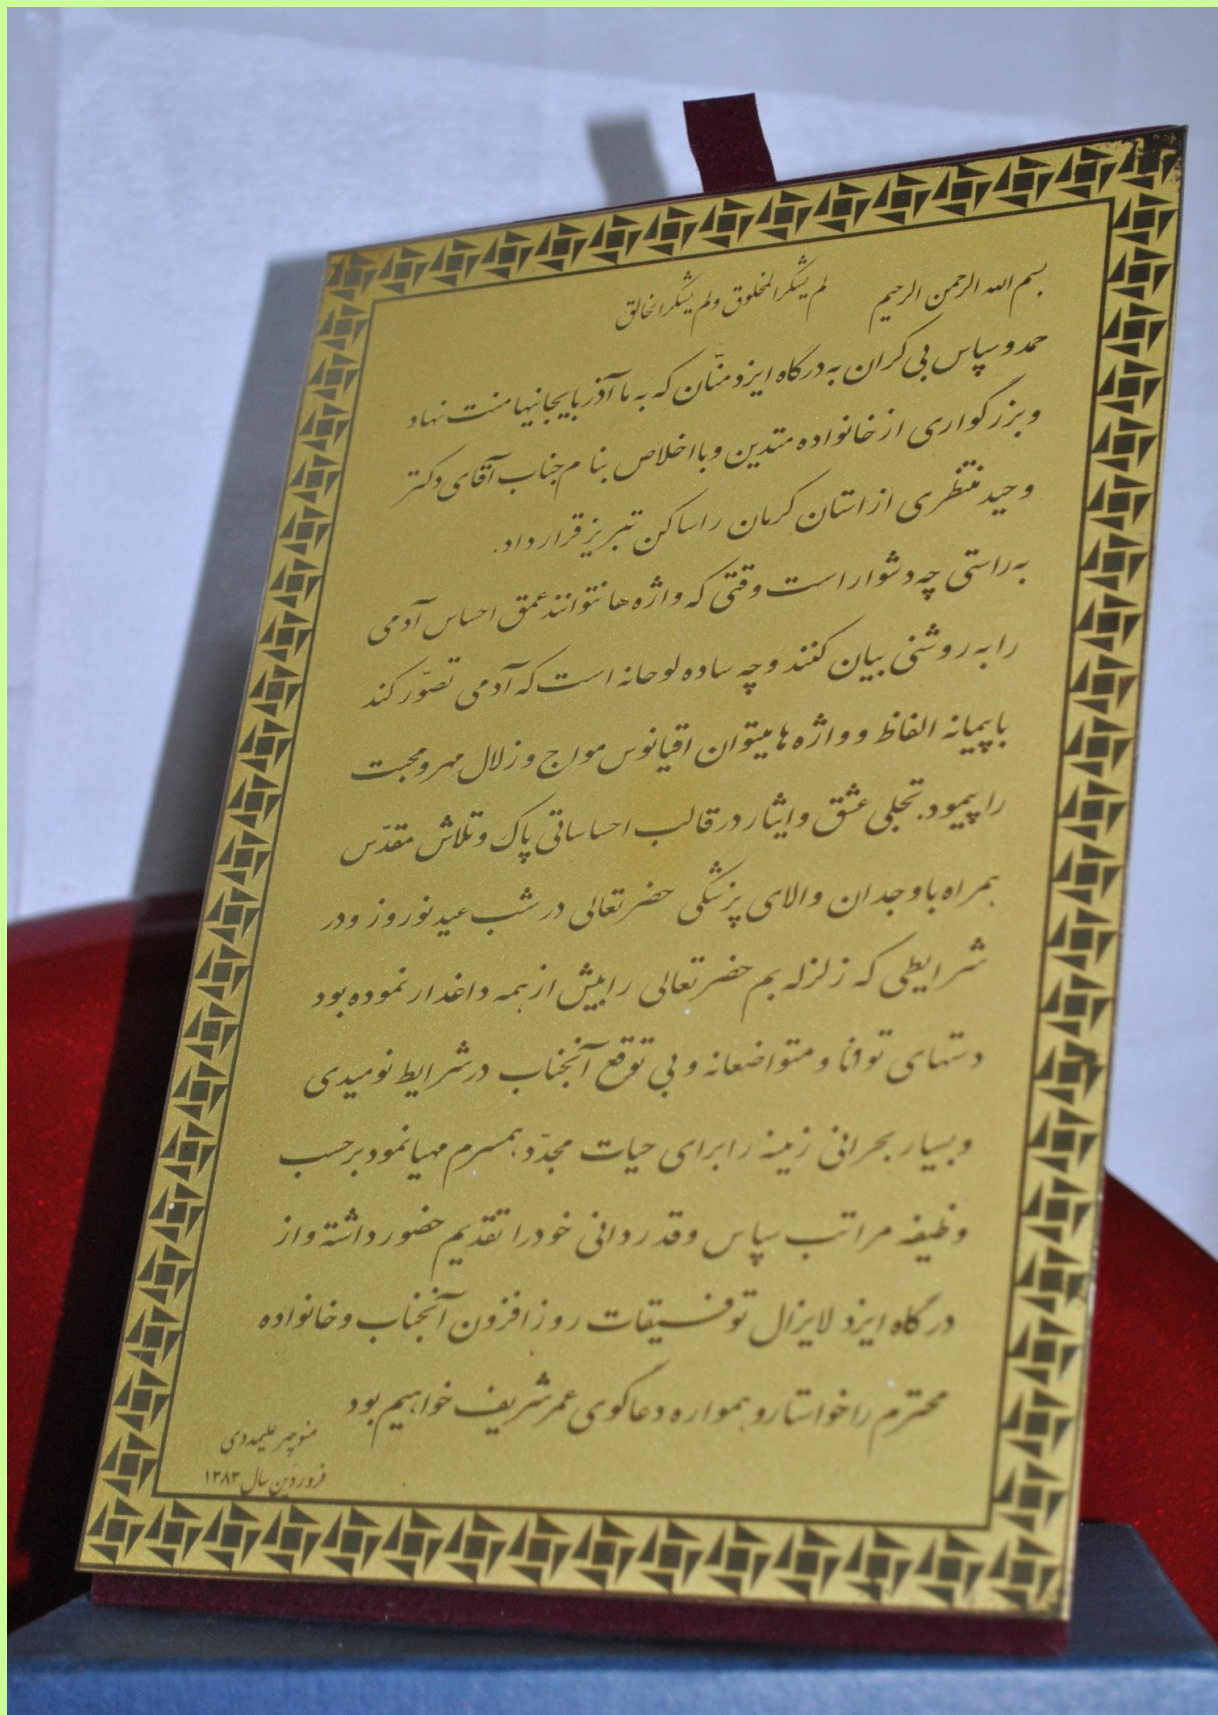 بسم الله الرحمن الرحیم لم یشکر المخلوق ولم یشکر الخالق
حمد و سپاس بی کران به درگاه ایزد منّان که به ما آذربایجانیها منت نهاد
و بزرگواری از خانواده متدین و با اخلاص بنام جناب آقای دکتر
وحید منتظری از استان کرمان را ساکن تبریز قرار داد.
به راستی چه دشوار است وقتی که واژه ها نتوانند عمق احساس آدمی
را به روشنی بیان کنند و چه ساده لوحانه است که آدمی تصوّر کند
با پیمانه الفاظ و واژه ها میتوان اقیانوس مواج و زلال مهر و محبت
را پیمود. تجلی عشق و ایثار در قالب احساساتی پاک و تلاش مقدّس
همراه با وجدان والای پزشکی حضرتعالی در شب عید نوروز و در
شرایطی که زلزله بم حضرتعالی را بیش از همه داغدار نموده بود
دستهای توانا و متواضعانه و بی توقع آنجناب در شرایط نومیدی
و بسیار بحرانی زمینه را برای حیات مجدّد همسرم مهیا نمود بر حسب
وظیفه مراتب سپاس و قدردانی خود را تقدیم حضور داشته و از
درگاه ایزد لایزال توفیقات روز افزون آنجناب و خانواده
محترم را خواستار و همواره دعاگوی عمر شریف خواهیم بود
منوچهر علیمددی
فروردین سال ۱۳۸۳